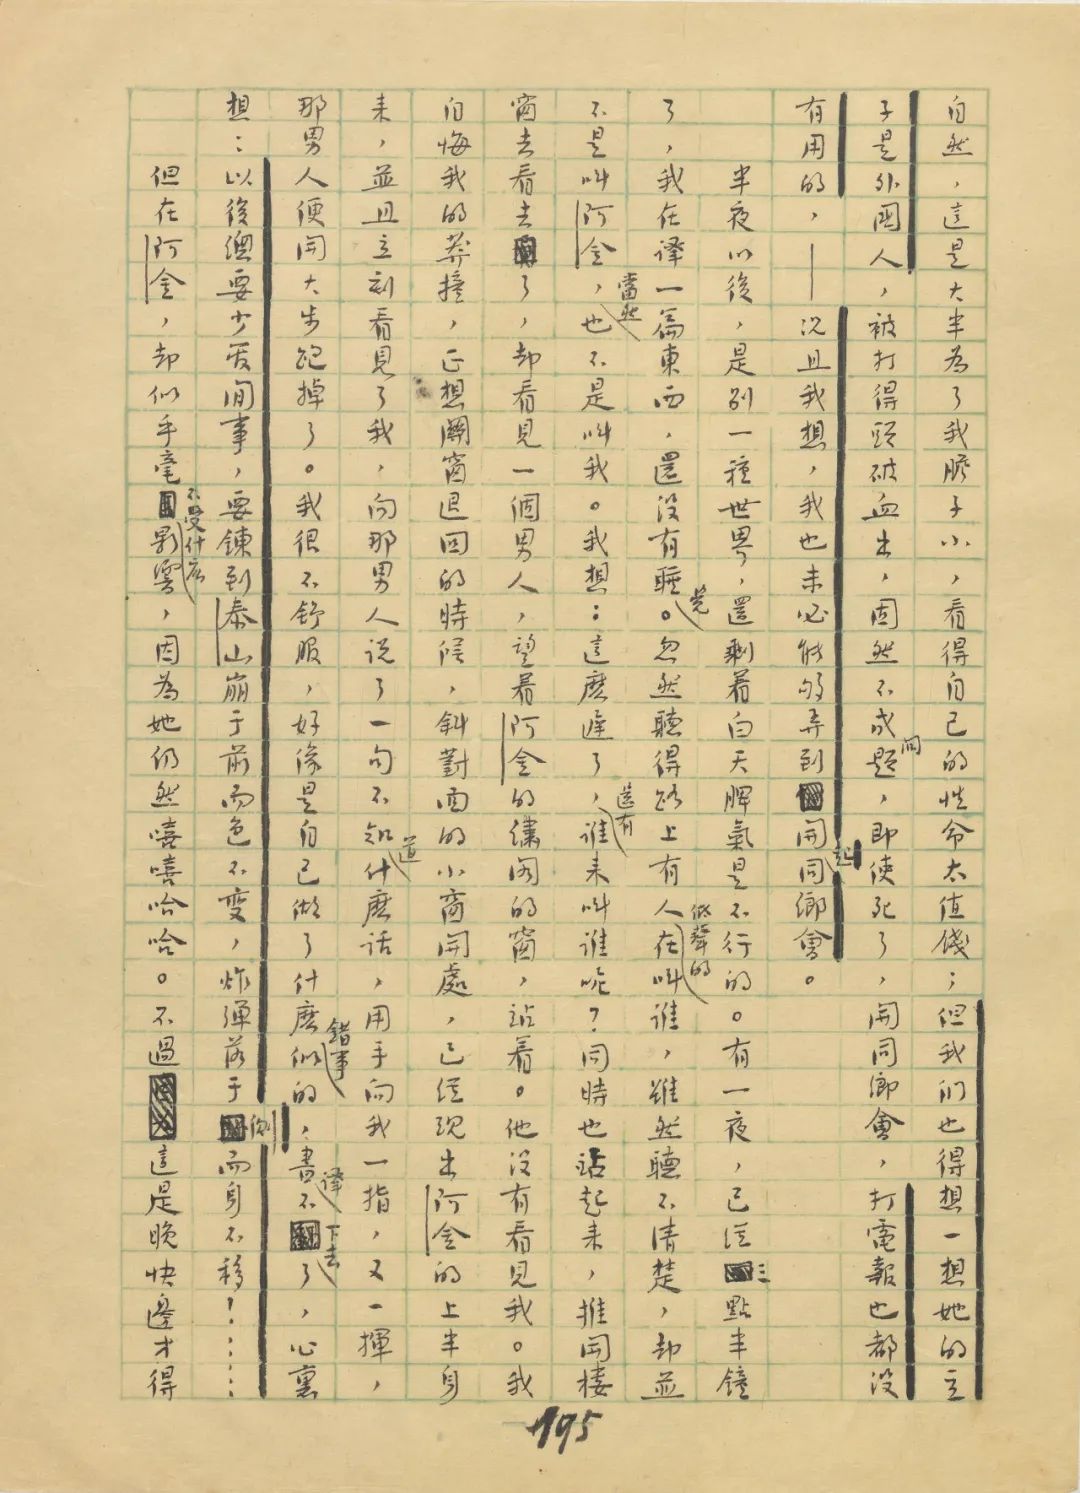 自然，這是大半為了我膽子小，看得自己的性命太值錢；但我們也得想一想她的主
子是外國人，被打得頭破血出，固然不成問題，即使死了，開同鄉會，打電報也都沒
有用的，——況且我想，我也未必能夠弄到開起同鄉會。
半夜以後，是別一種世界，還剩着白天脾氣是不行的。有一夜，已經三點半鐘
了，我在譯一篇東西，還沒有睡覺。忽然聽得路上有人低聲的在叫誰，雖然聽不清楚，却並
不是叫阿金，當然也不是叫我。我想：這麽遲了，還有誰來叫誰呢？同時也站起來，推開樓
窗去看去了，却看見一個男人，望着阿金的繡閣的窗，站着。他沒有看見我。我
自悔我的莽撞，正想關窗退回的時候，斜對面的小窗開處，已經現出阿金的上半身
來，並且立刻看見了我，向那男人說了一句不知道什麽話，用手向我一指，又一揮，
那男人便開大步跑掉了。我很不舒服，好像是自己做了什麽錯事似的，書譯不下去了，心裏
想：以後總要少管閒事，要鍊到泰山崩于前而色不變，炸彈落于側而身不移！……
但在阿金，却似乎毫不受什麽影響，因為她仍然嘻嘻哈哈。不過這是晚快邊才得
195